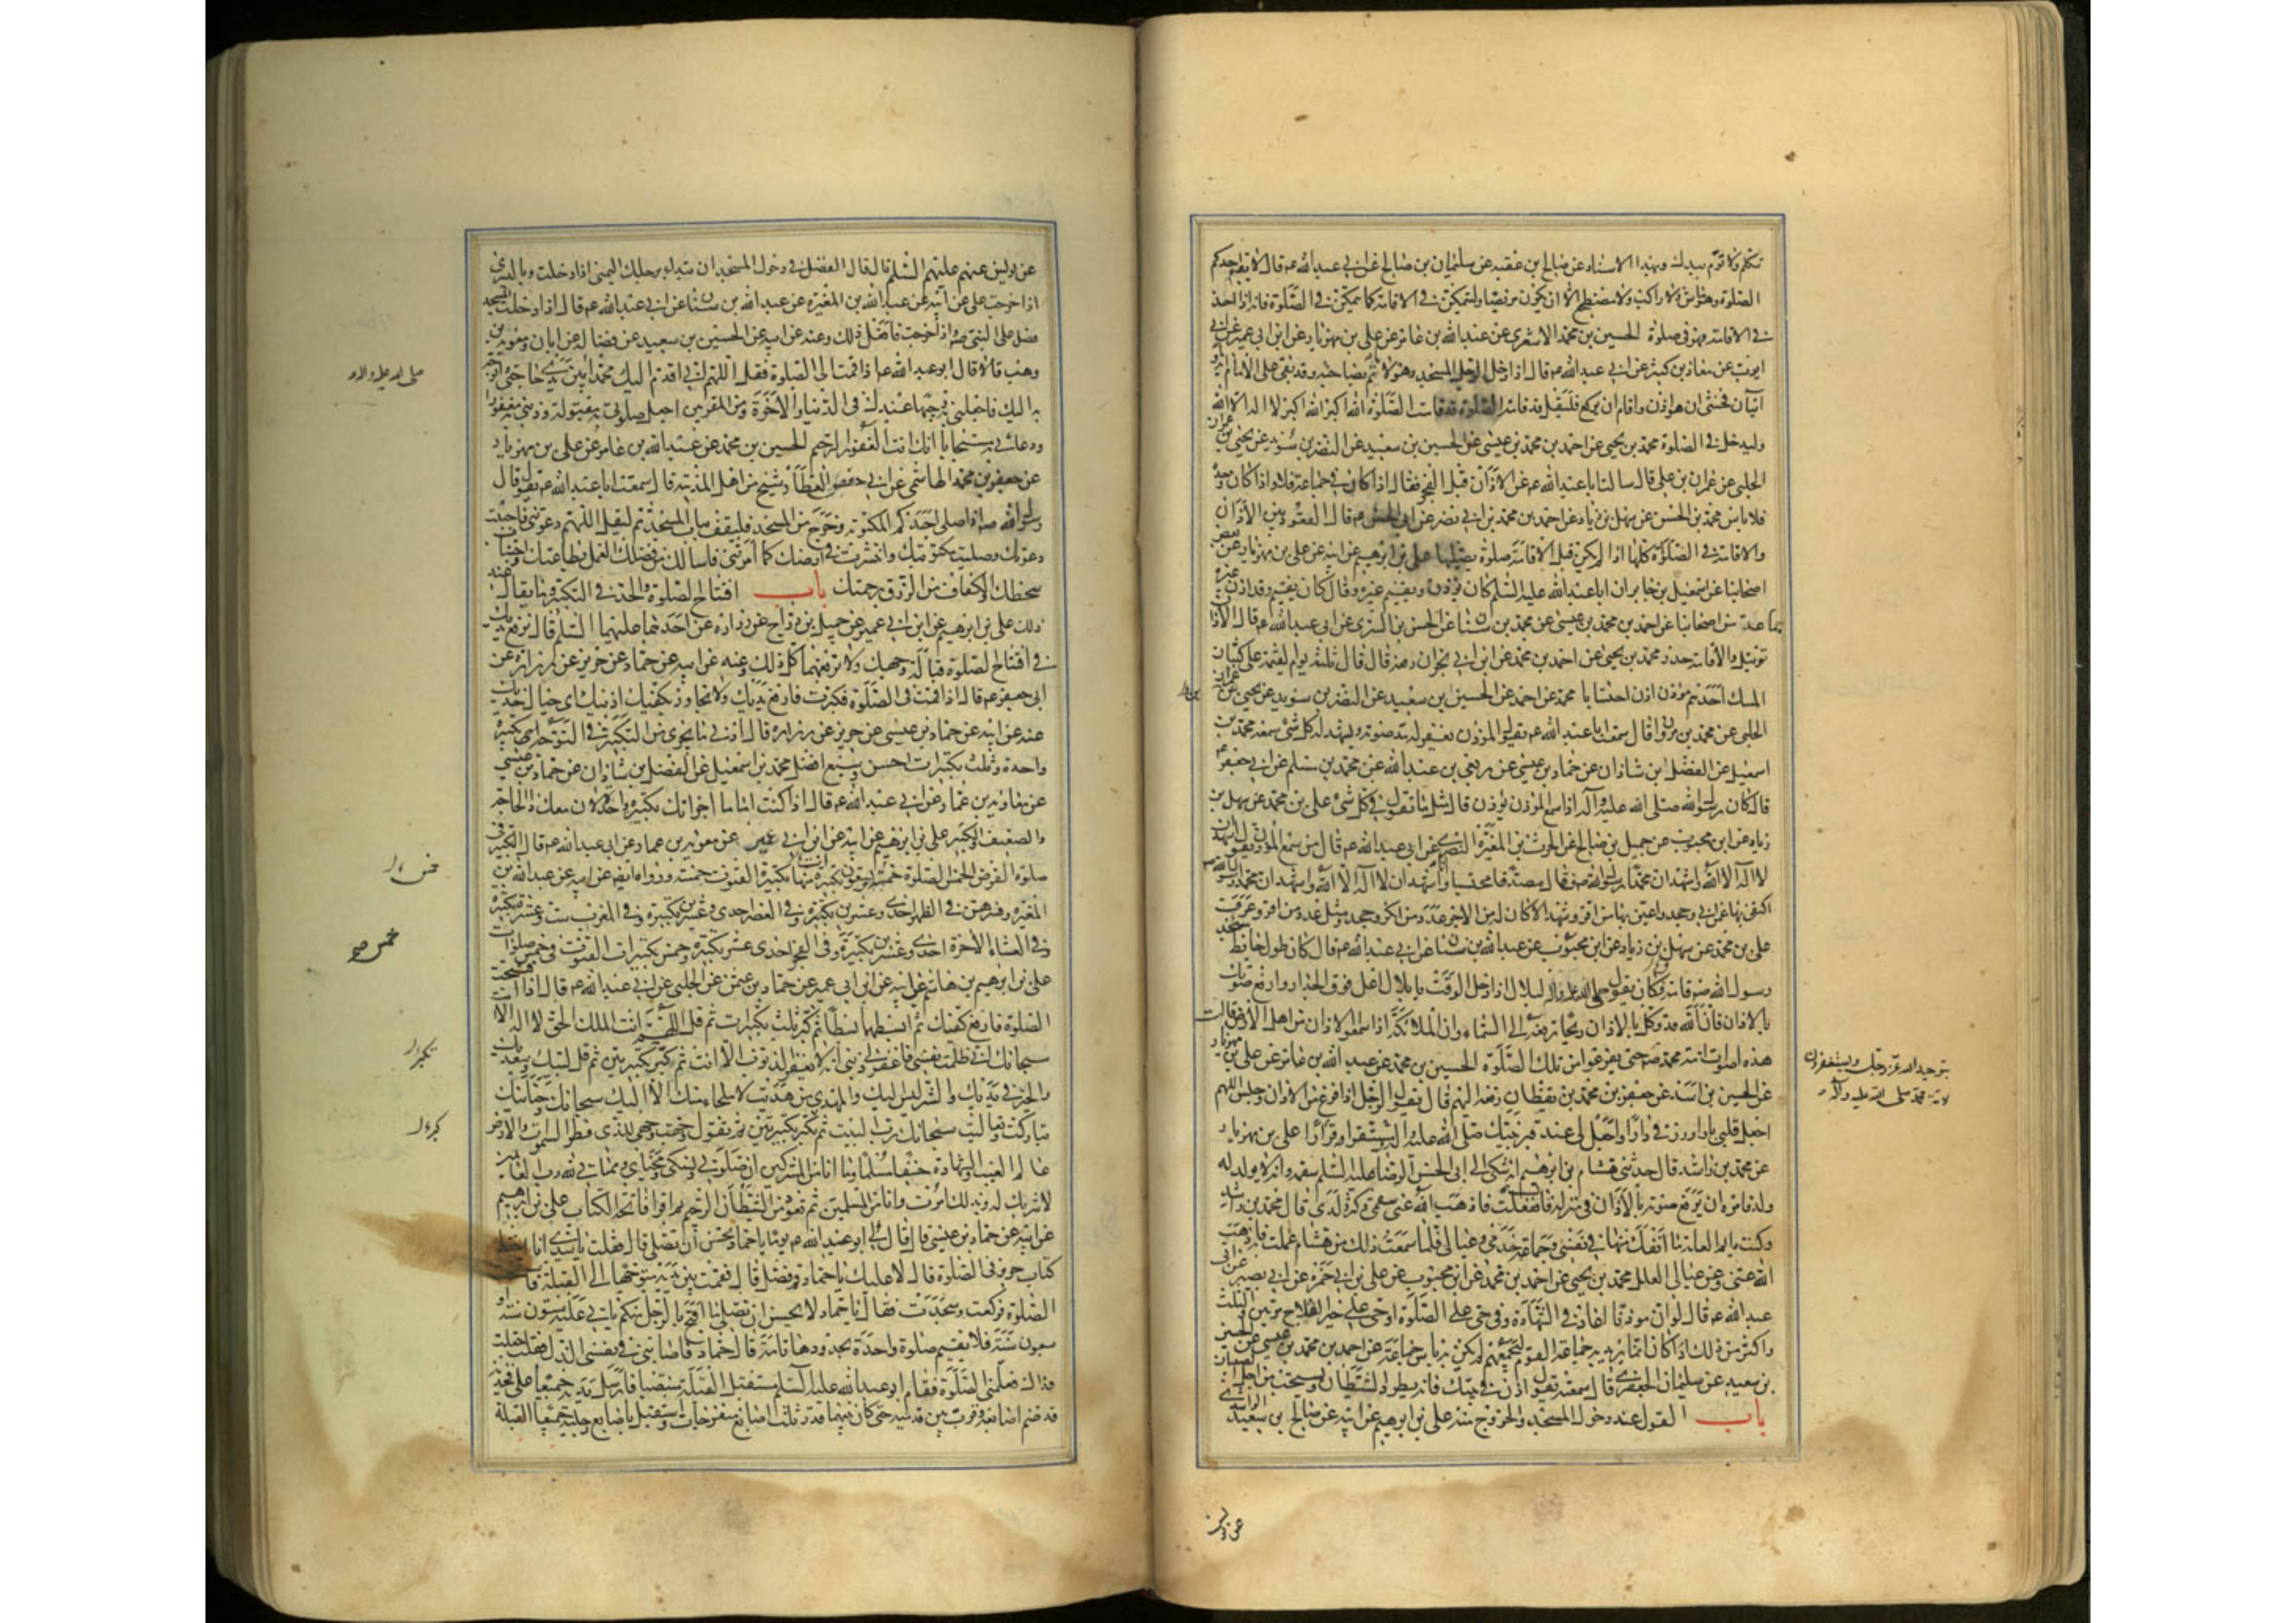 تتكلم ولا تؤم بيدك وبهذا الاسناد عن صالح بن عقبه عن سليمان بن صالح عن ابي عبد الله عم قال لا يقيم احدكم
الصلوة وهو ماش ولا راكب ولا مضطجع الا ان يكون مريضا وليتمكن في الاقامة كما يتمكن في الصلوة فانه اذا اخذ
في الاقامة فهو في صلوة الحسين بن محمد الاشعري عن عبد الله بن عامر عن علي بن مهزيار عن ابن ابي عمير عن ابي
ايوب عن معاذ بن كثير عن ابي عبد الله عم قال اذا دخل الرجل المسجد وهو لا يأتم بصاحبه وقد بقي على الامام آية او
آيتان فخشي ان هو اذن واقام ان يركع فليقل قد قامت الصلوة قد قامت الصلوة الله اكبر الله اكبر لا اله الا الله
وليدخل في الصلوة محمد بن يحيى عن احمد بن محمد بن عيسى عن الحسين بن سعيد عن النضر بن سويد عن يحيى بن عمران
الحلبي عن عمران بن علي قال سالت ابا عبد الله عم عن الاذان قبل الفجر فقال اذا كان في جماعة فلا واذا كان وحده
فلا باس محمد بن الحسن عن سهل بن زياد عن احمد بن محمد بن ابي نصر عن ابي الحسن عم قال القعود بين الاذان
والاقامة في الصلوة كلها اذا لم يكن قبل الاقامة صلوة يصليها علي بن ابرهيم عن ابيه عن علي بن مهزيار عن بعض
اصحابنا عن اسمعيل بن جابر ان ابا عبد الله عليه السلم كان يؤذن ويقيم غيره وقال كان يقيم وقد اذن غيره
جماعة من اصحابنا عن احمد بن محمد بن عيسى عن محمد بن سنان عن الحسن بن السري عن ابي عبد الله عم قال الاذان
ترتيل والاقامة حدر محمد بن يحيى عن احمد بن محمد عن ابن ابي نجران رفعه قال قال ثلثة يوم القيمة على كثبان
المسك احدهم مؤذن اذن احتسابا محمد عن احمد عن الحسين بن سعيد عن النضر بن سويد عن يحيى بن عمران
الحلبي عن محمد بن مروان قال سمعت ابا عبد الله عم يقول المؤذن يغفر له مد صوته ويشهد له كل شي سمعه محمد بن
اسمعيل عن الفضل بن شاذان عن حماد بن عيسى عن ربعي بن عبد الله عن محمد بن مسلم عن ابي جعفر عم
قال كان رسول الله صلى الله عليه وآله اذا سمع المؤذن يؤذن قال مثل ما يقول في كل شي علي بن محمد عن سهل بن
زياد عن ابن محبوب عن جميل بن صالح عن الحرث بن المغيرة النضري عن ابي عبد الله عم قال من سمع المؤذن يقول اشهد ان
لا اله الا الله واشهد ان محمدا رسول الله فقال مصدقا محتسبا وانا اشهد ان لا اله الا الله واشهد ان محمدا رسول الله
اكتفي بها عن ابي وجحد واعين بها من اقر وشهد الا كان له من الاجر عدد من انكر وجحد ومثل عدد من اقر وعرف
علي بن محمد عن سهل بن زياد عن ابن محبوب عن عبد الله بن سنان عن ابي عبد الله عم قال كان طول حايط مسجد
رسول الله صم قامة فكان يقول صلى الله عليه وآله لبلال اذا دخل الوقت يا بلال اعل فوق الجدار وارفع صوتك
بالاذان فان الله قد وكل بالاذان ريحا ترفعه الى السماء وان الملائكة اذا سمعوا الاذان من اهل الارض قالت
هذه اصوات امة محمد صم حتى يفرغوا من تلك الصلوة الحسين بن محمد عن عبد الله بن عامر عن علي بن مهزيار
عن الحسين بن اسد عن جعفر بن محمد بن يقظان رفعه اليهم قال يقول الرجل اذا فرغ من الاذان وجلس اللهم
اجعل قلبي بارا ورزقي دارا واجعل لي عند قبر نبيك صلى الله عليه وآله مستقرا وقرارا علي بن مهزيار
عن محمد بن راشد قال حدثني هشام بن ابرهيم انه شكى الى ابي الحسن الرضا عليه السلم سقمه وانه لا يولد له
ولد فامره ان يرفع صوته بالاذان في منزله قال ففعلت فاذهب الله عني سقمي وكثر ولدي قال محمد بن راشد
وكنت دايم العلة ما انفك منها في نفسي وجماعة خدمي وعيالي فلما سمعت ذلك من هشام عملت به فاذهب
الله عني وعن عيالي العلل محمد بن يحيى عن احمد بن محمد عن ابن محبوب عن علي بن ابي حمزة عن ابي بصير عن ابي
عبد الله عم قال لو ان مؤذنا اعاد في الشهادة وفي حي على الصلوة او حي على خير الفلاح مرتين والثلث
واكثر من ذلك اذا كان انما يريد به جماعة القوم ليجمعهم لم يكن به باس جماعة عن احمد بن محمد بن عيسى عن الحسين
بن سعيد عن سليمان الجعفري قال سمعته يقول اذن في بيتك فانه يطرد الشيطان ويستحب من اجل الصبيان
باب القول عند دخول المسجد والخروج منه علي بن ابرهيم عن ابيه عن صالح بن سعيد الراشدي
بتوحيد الله عز وجل ويستغفرون
لامة محمد صلى الله عليه وآله
عن يونس
عن يونس عنهم عليهم السلم قال قال الفضل في دخول المسجد ان تبدا برجلك اليمنى اذا دخلت وباليسرى
اذا خرجت علي عن ابيه عن عبد الله بن المغيرة عن عبد الله بن سنان عن ابي عبد الله عم قال اذا دخلت المسجد
فصل على النبي صم واذا خرجت فافعل ذلك وعنه عن ابيه عن الحسين بن سعيد عن فضالة عن ابان ومعوية بن
وهب قالا قال ابو عبد الله عم اذا قمت الى الصلوة فقل اللهم اني اقدم اليك محمدا بين يدي حاجتي واتوجه
به اليك فاجعلني به وجيها عندك في الدنيا والاخرة ومن المقربين اجعل صلوتي به مقبولة وذنبي به مغفورا
ودعائي به مستجابا انك انت الغفور الرحيم الحسين بن محمد عن عبد الله بن عامر عن علي بن مهزيار
عن جعفر بن محمد الهاشمي عن ابي حفص العطار شيخ من اهل المدينة قال سمعت ابا عبد الله عم يقول قال
رسول الله صم اذا صلى احدكم المكتوبة وخرج من المسجد فليقف بباب المسجد ثم ليقل اللهم دعوتني فاجبت
دعوتك وصليت مكتوبتك وانتشرت في ارضك كما امرتني فاسالك من فضلك العمل بطاعتك واجتناب
سخطك والكفاف من الرزق برحمتك باب افتتاح الصلوة والحد في التكبير وما يقال عند
ذلك علي بن ابرهيم عن ابيه عن ابن ابي عمير عن جميل بن دراج عن زرارة عن احدهما عليهما السلم قال ترفع يديك
في افتتاح الصلوة قبالة وجهك ولا ترفعهما كل ذلك وعنه عن ابيه عن حماد عن حريز عن زرارة عن
ابي جعفر عم قال اذا قمت في الصلوة فكبرت فارفع يديك ولا تجاوز بكفيك اذنيك اي حيال خديك
عنه عن ابيه عن حماد بن عيسى عن حريز عن زرارة قال ادنى ما يجزي من التكبير في التوجه الى تكبيرة
واحدة وثلث تكبيرات احسن وسبع افضل محمد بن اسمعيل عن الفضل بن شاذان عن حماد بن عيسى
عن معاوية بن عمار عن ابي عبد الله عم قال اذا كنت اماما اجزاتك تكبيرة واحدة لان معك ذا الحاجة
والضعيف والكبير علي بن ابرهيم عن ابيه عن ابن ابي عمير عن معوية بن عمار عن ابي عبد الله عم قال التكبير في
صلوة الفرض الخمس الصلوة خمس وتسعون تكبيرة منها تكبيرة القنوت خمسة ورواه ايضا عن ابيه عن عبد الله بن
المغيرة وفسرهن في الظهر احدى وعشرين تكبيرة وفي العصر احدى وعشرين تكبيرة وفي المغرب ست عشرة تكبيرة
وفي العشاء الاخرة احدى وعشرين تكبيرة وفي الفجر احدى عشر تكبيرة وخمس تكبيرات القنوت في خمس صلوات
علي بن ابرهيم بن هاشم عن ابيه عن ابن ابي عمير عن حماد بن عثمن عن الحلبي عن ابي عبد الله عم قال اذا افتتحت
الصلوة فارفع كفيك ثم ابسطهما بسطا ثم كبر ثلث تكبيرات ثم قل اللهم انت الملك الحق لا اله الا انت
سبحانك اني ظلمت نفسي فاغفر لي ذنبي انه لا يغفر الذنوب الا انت ثم كبر تكبيرتين ثم قل لبيك وسعديك
والخير في يديك والشر ليس اليك والمهدي من هديت لا ملجا منك الا اليك سبحانك وحنانيك
تباركت وتعاليت سبحانك رب البيت ثم تكبر تكبيرتين ثم تقول وجهت وجهي للذي فطر السموات والارض
عالم الغيب والشهادة حنيفا مسلما وما انا من المشركين ان صلوتي ونسكي ومحياي ومماتي لله رب العالمين
لا شريك له وبذلك امرت وانا من المسلمين ثم تعوذ من الشيطان الرجيم ثم اقرا فاتحة الكتاب علي بن ابرهيم
عن ابيه عن حماد بن عيسى قال قال لي ابو عبد الله عم يوما يا حماد تحسن ان تصلي قال فقلت يا سيدي انا احفظ
كتاب حريز في الصلوة قال لا عليك يا حماد قم فصل قال فقمت بين يديه متوجها الى القبلة فاستفتحت
الصلوة فركعت وسجدت فقال يا حماد لا تحسن ان تصلي ما اقبح بالرجل منكم ياتي عليه ستون سنة او
سبعون سنة فلا يقيم صلوة واحدة بحدودها تامة قال حماد فاصابني في نفسي الذل فقلت جعلت
فداك فعلمني الصلوة فقام ابو عبد الله عليه السلم مستقبل القبلة منتصبا فارسل يديه جميعا على فخذيه
قد ضم اصابعه وقرب بين قدميه حتى كان بينهما قدر ثلث اصابع منفرجات واستقبل باصابع رجليه جميعا القبلة
صلى الله عليه وآله